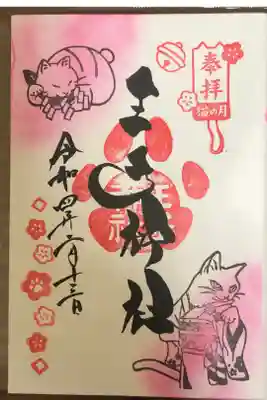 奉拝
猫の月
王子神社
令和四年二月十三日